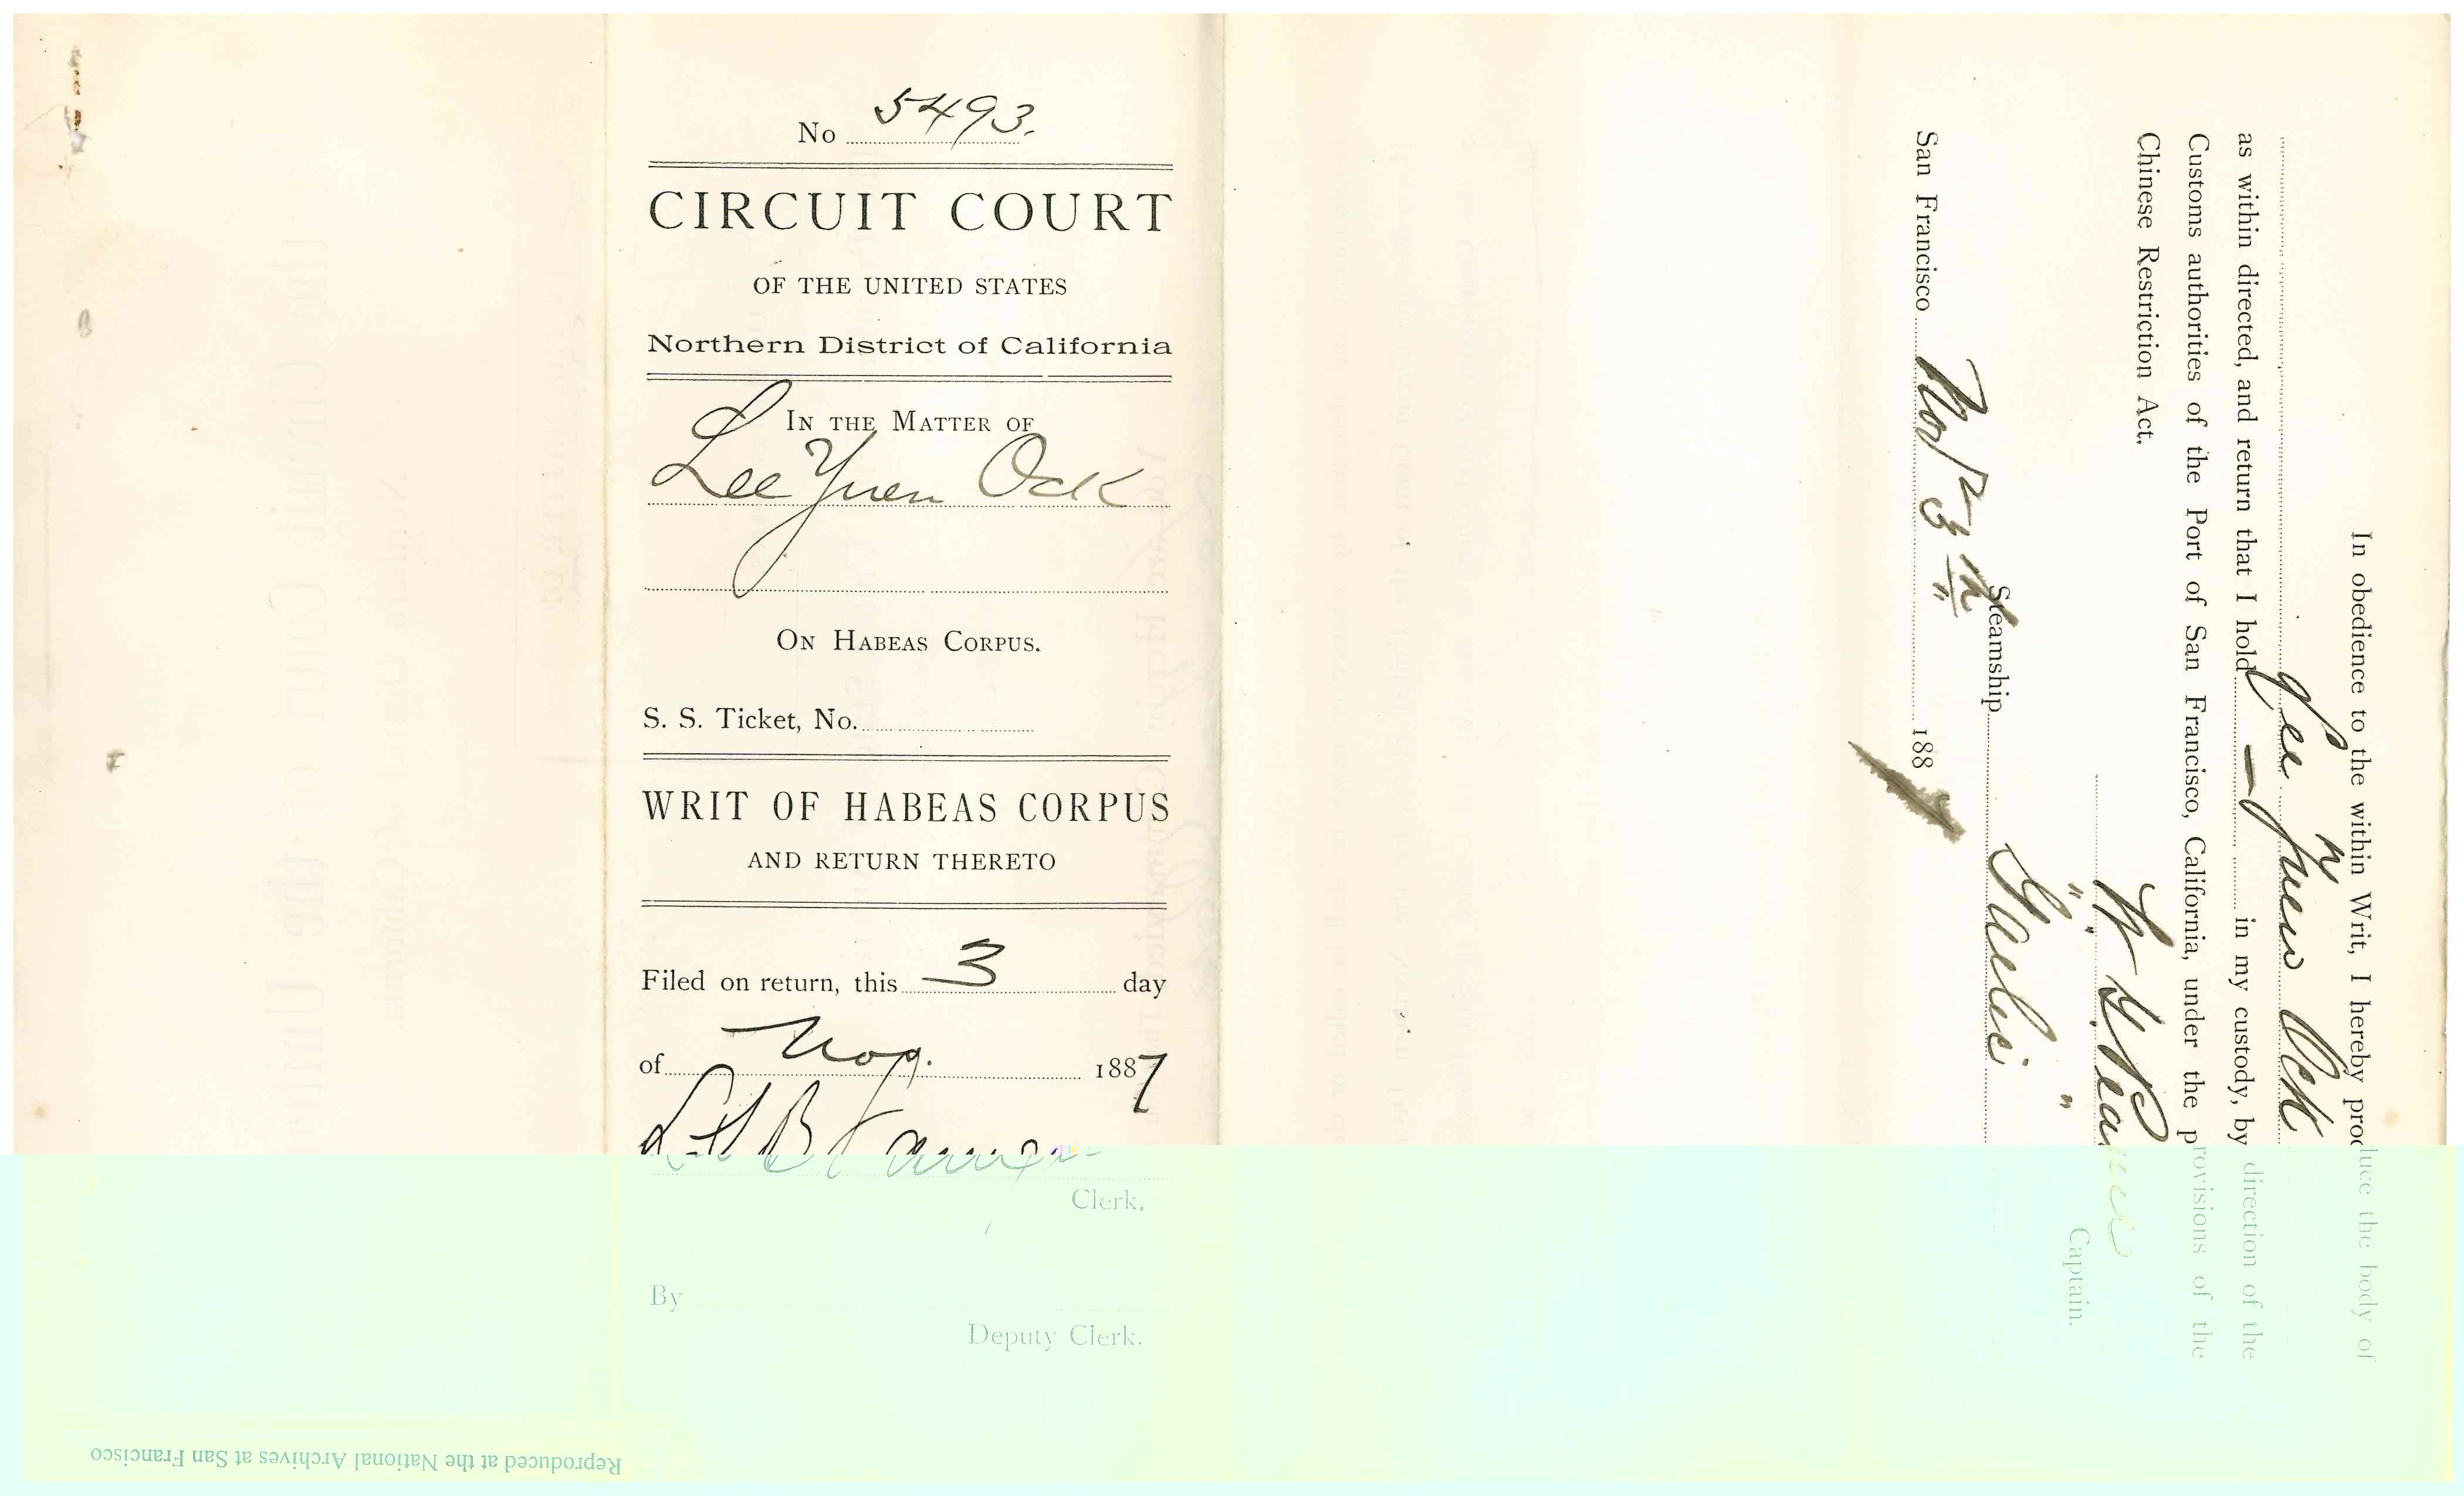 No 5493.
CIRCUIT COURT
OF THE UNITED STATES
Northern District of California
IN THE MATTER OF
Lee Yuen Ock
ON HABEAS CORPUS.
S. S. Ticket, No.
WRIT OF HABEAS CORPUS
AND RETURN THERETO
Filed on return, this 3 day
of Nov. 1887
Clerk.
By
Deputy Clerk.
In obedience to the within Writ, I hereby produce the body of
Lee Yuen Ock
as within directed, and return that I hold — in my custody, by direction of the
Customs authorities of the Port of San Francisco, California, under the provisions of the
Chinese Restriction Act.
Captain.
Steamship Gaelic
San Francisco Nov 3th 1887
Reproduced at the National Archives at San Francisco